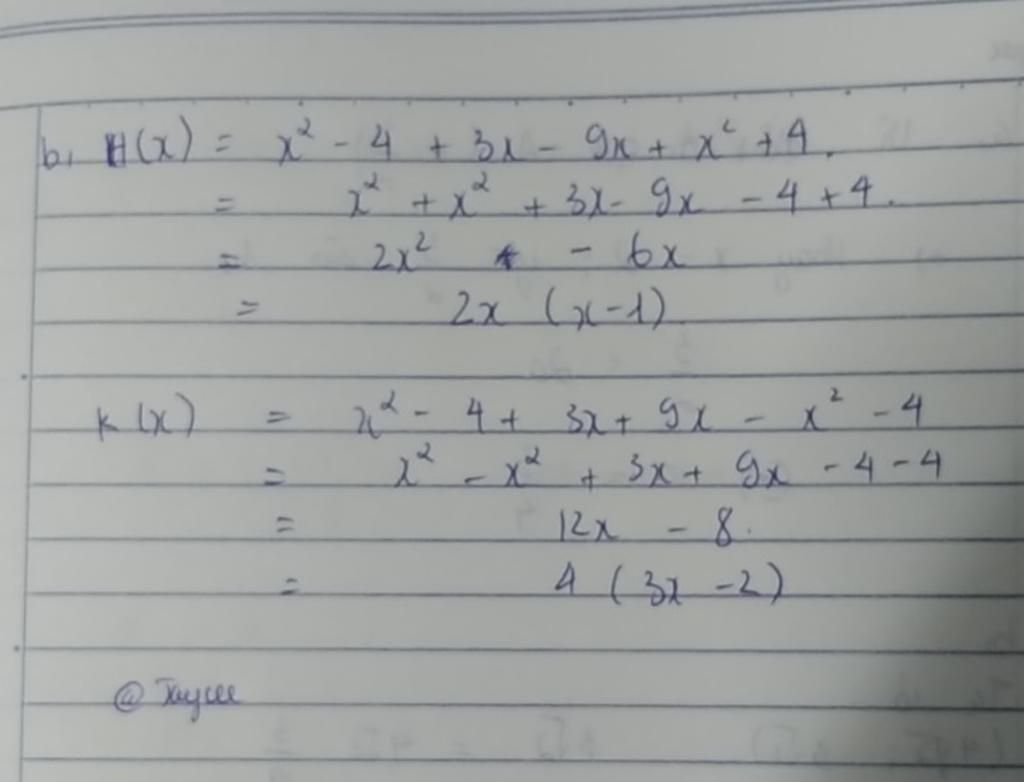 b, H(x) = x² - 4 + 3x - 9x + x² + 4.
= x² + x² + 3x - 9x - 4 + 4.
= 2x² - 6x
= 2x (x-1)
K(x) = x² - 4 + 3x + 9x - x² - 4
= x² - x² + 3x + 9x - 4 - 4
= 12x - 8.
= 4 (3x - 2)